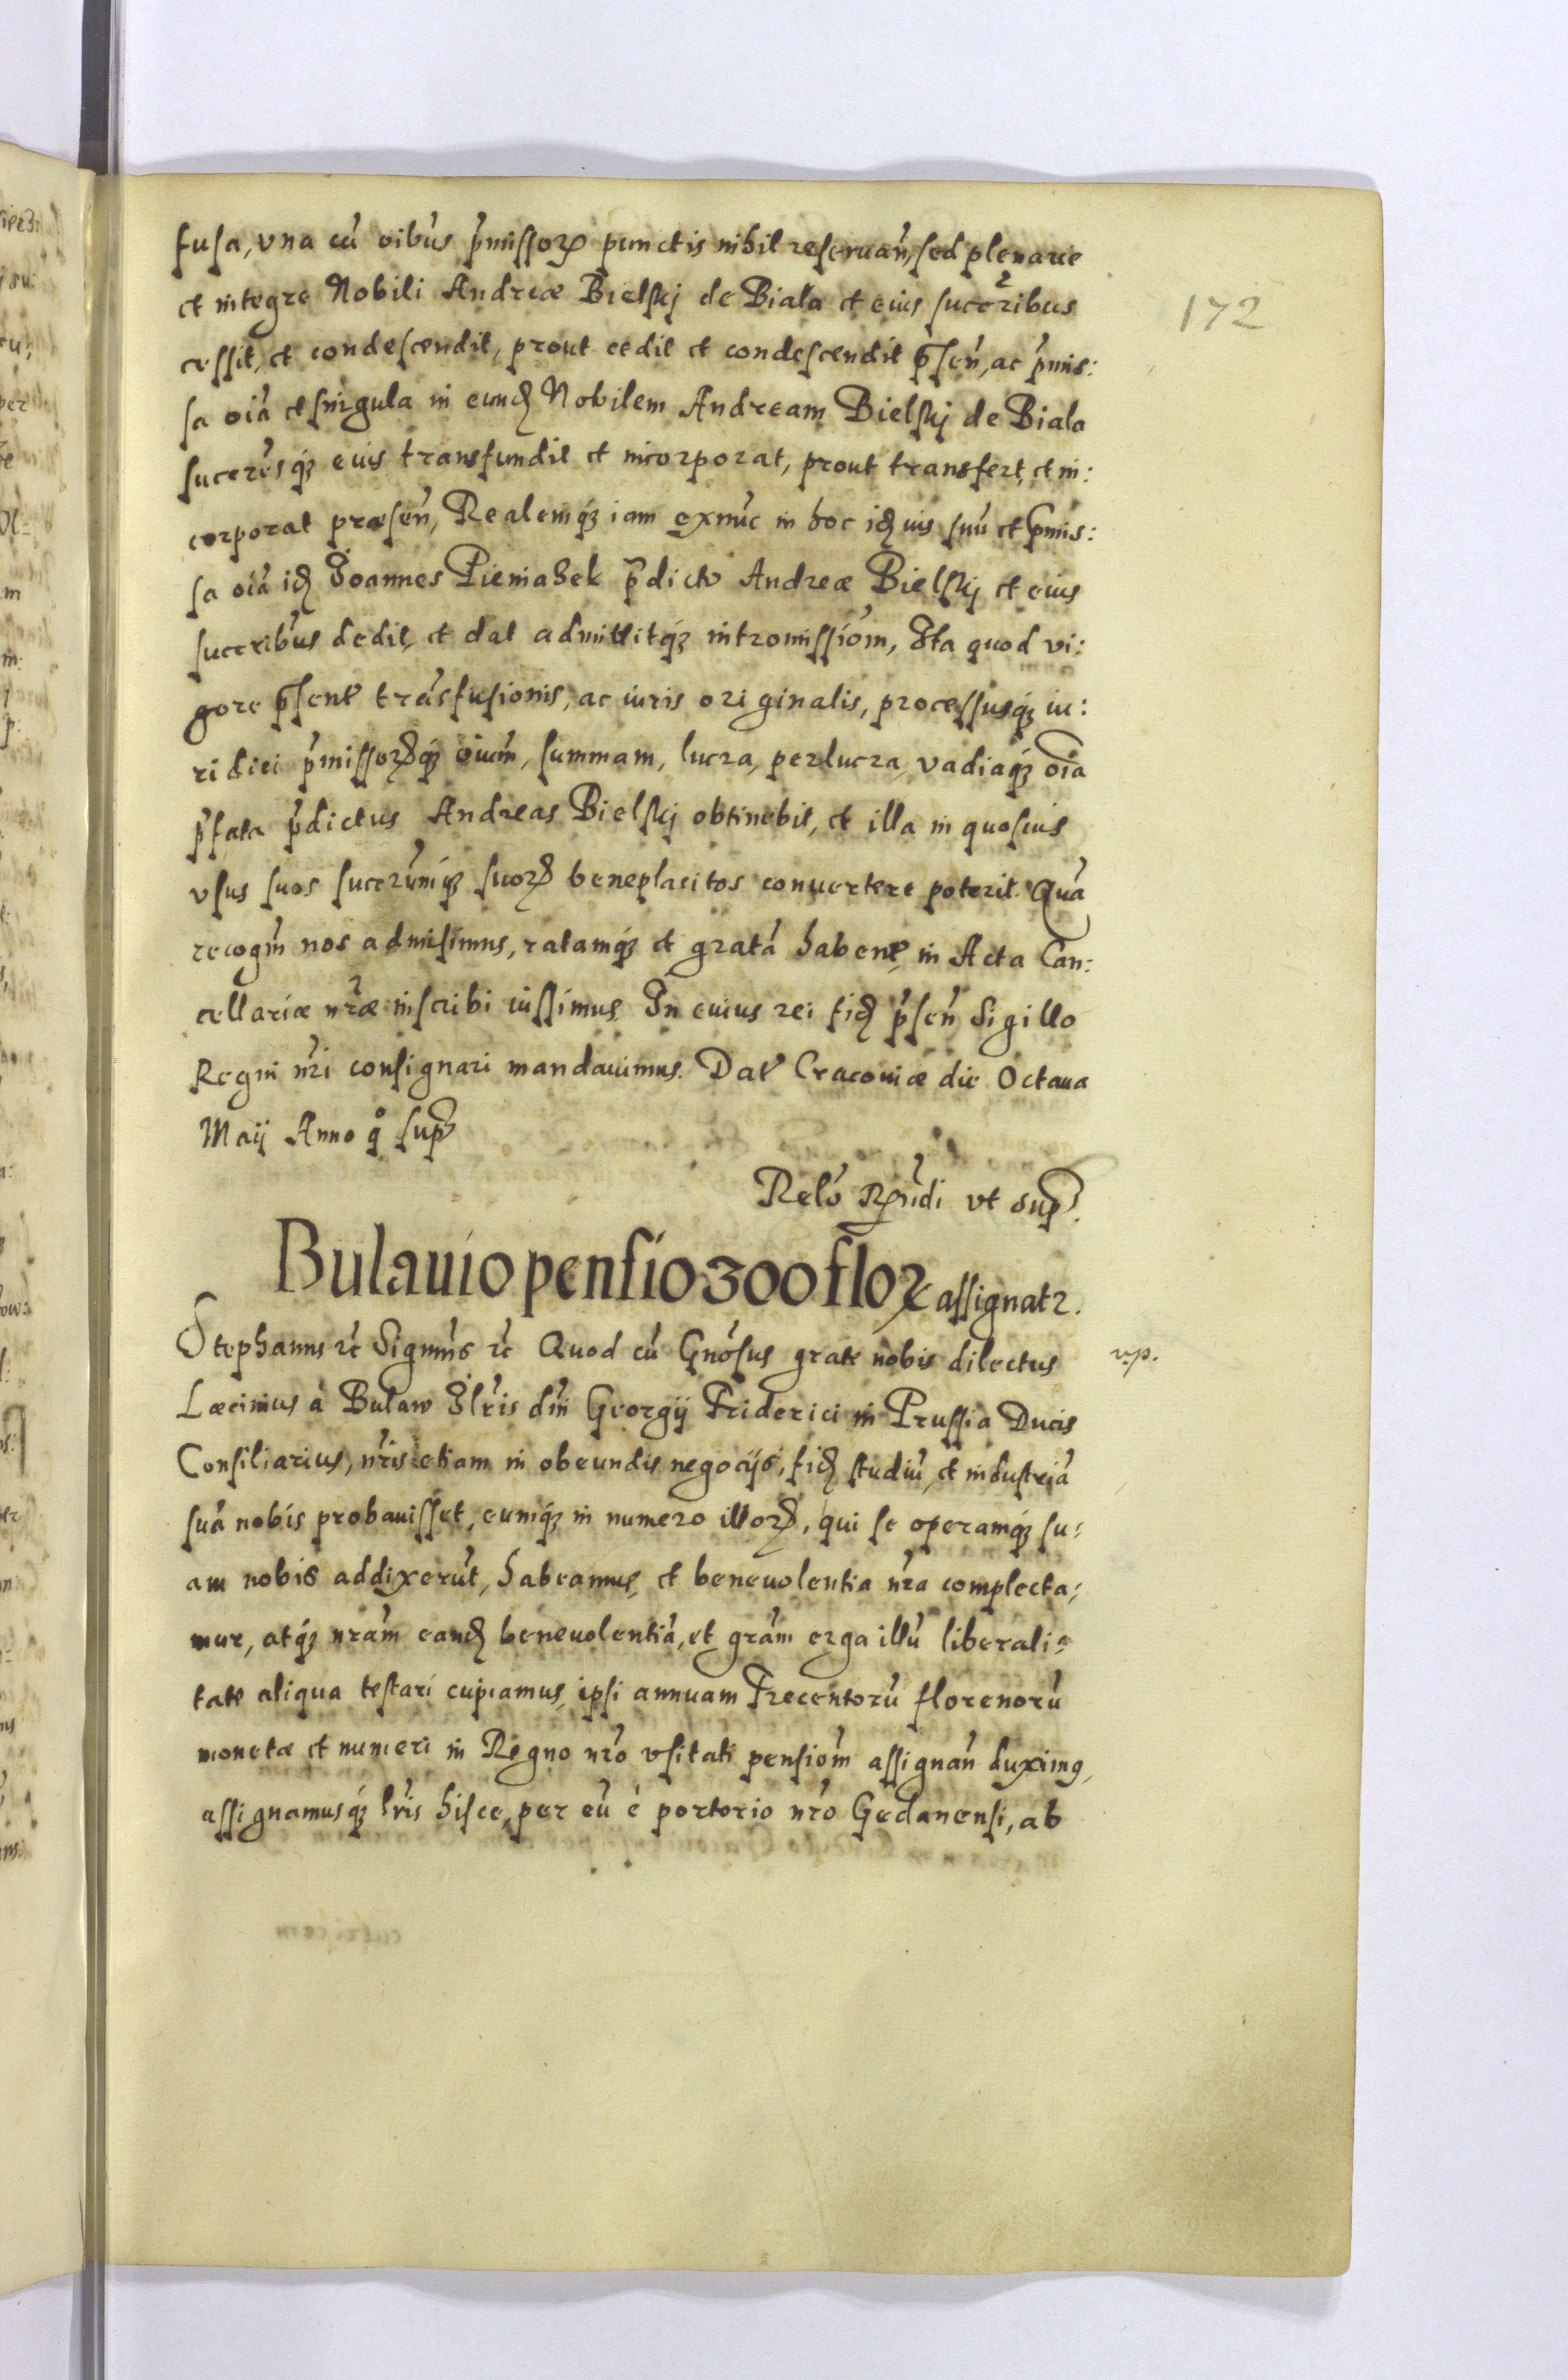 172
fusa, vna cũ oibus p̃missorꝝ punctis nihil reseruañ, sed plenarie
et integre Nobili Andreæ Bielskij de Biala et eius succẽribus
cessit, et condescendit, prout cedit et condescendit p̃señ, ac p̃mis:
sa oĩa et singula in eundẽ Nobilem Andream Bielskij de Biala
succẽresq́ꝫ eius transfundit et incorporat, prout transfert, et in:
corporat præseñ, Realemq́ꝫ iam exnũc in hoc idẽ ius suũ et p̃mis:
sa oĩa idẽ Joannes Pieniaʒek p̃dicto Andreæ Bielskij et eius
succeribus dedit, et dat admittitq́ꝫ intromissiõm, Ita quod vi:
gore p̃sent̃ trãsfusionis, ac iuris originalis, processusq́ꝫ iu:
ridici p̃missorꝝq́ꝫ oĩum, summam, lucra, perlucra, vadiaq́ꝫ oĩa
p̃fata p̃dictus Andreas Bielskij obtinebit, et illa in quosuis
vsus suos succẽrumq́ꝫ suorꝝ beneplacitos conuertere poterit. Quã
recogm̃ nos admisimus, ratamq́ꝫ et gratã habent̃, in Acta Can:
cellariæ nr̃æ inscribi iussimus. In cuius rei fidẽ p̃señ Sigillo
Regni nr̃i consignari mandauimus. Dat̃ Cracouiæ die Octaua
Maij Anno q̊ sup̃
Relõ Rp̃ndi vt sup̃.
Bulauio pensio 300 florꝝ assignatr.
Stephanus ꝛc̃ Sigm̃s ꝛc̃ Quod cũ Gñosus grate nobis dilectus
v.p.
Læcinius à Bulaw Ilr̃is dñi Georgij Friderici in Prussia Ducis
Consiliarius, nr̃is etiam in obeundis negocijs, fidẽ studiũ, et industriã
suã nobis probauisset, eumq́ꝫ in numero illorꝝ, qui se operamq́ꝫ su:
am nobis addixerũt, habeamus, et beneuolentia nr̃a complecta:
mur, atq́ꝫ nr̃am eandẽ beneuolentiã, et grãm erga illũ liberali:
tate aliqua testari cupiamus, ipsi annuam Trecentorũ florenorũ
monetæ et numeri in Regno nr̃o vsitati pensiõm assignañ duximꝰ,
assignamusq́ꝫ lr̃is hisce, per eũ è portorio nr̃o Gedanensi, ab